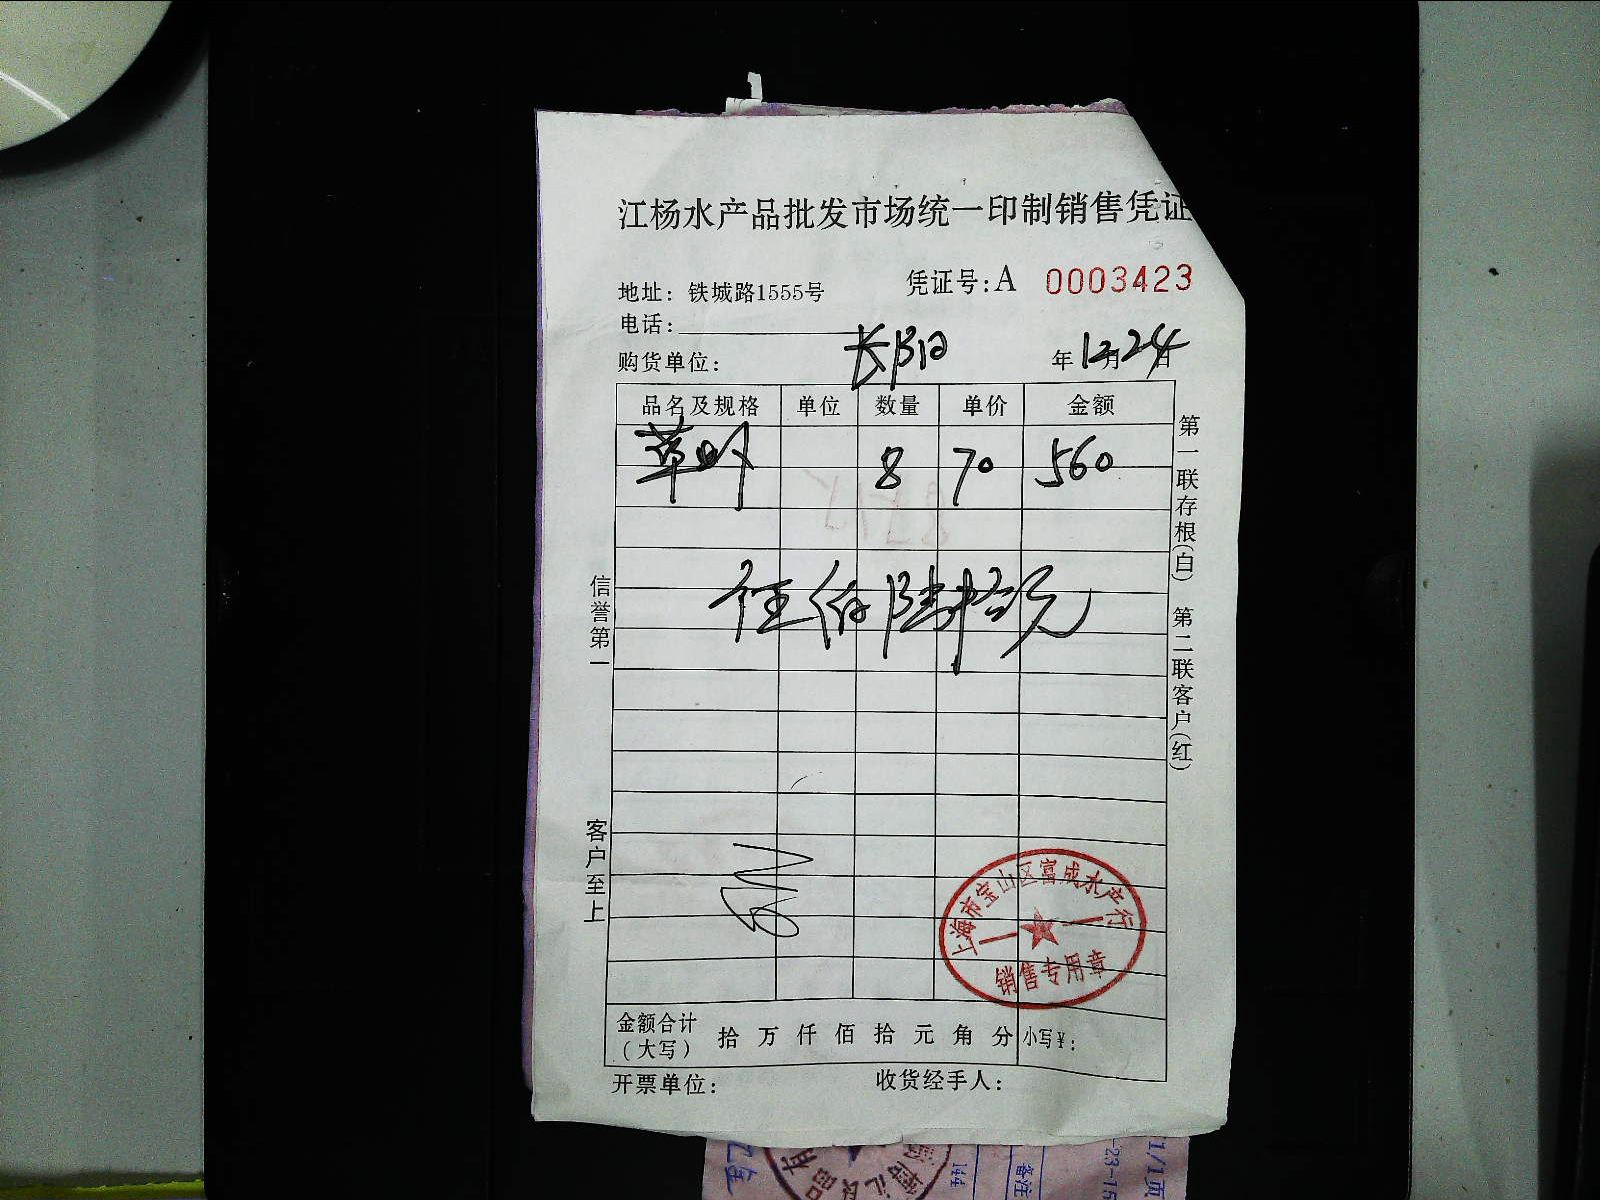 江杨水产品批发市场统一印制销售凭证
地址：铁城路1555号
凭证号：A 0003423
电话：
购货单位： 长阳
年12月24日
品名及规格 单位 数量 单价 金额
草 8 70 560
伍佰陆拾元
信誉第一
客户至上
第一联存根(白) 第二联客户(红)
上海市宝山区富成水产行
销售专用章
金额合计（大写） 拾 万 仟 佰 拾 元 角 分 小写￥：
开票单位： 收货经手人：
1/1页
备注